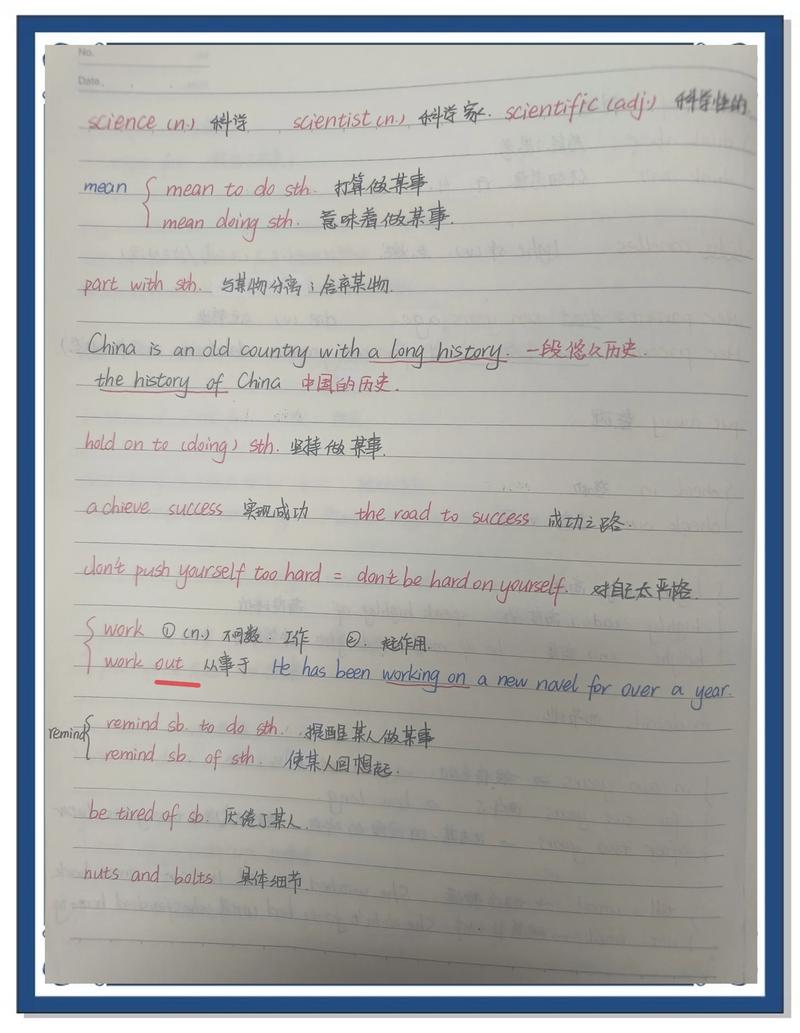 No.
Date.
science (n.) 科学 scientist (n.) 科学家. scientific (adj.) 科学性的
mean { mean to do sth. 打算做某事
mean doing sth. 意味着做某事.
part with sth. 与某物分离；舍弃某物.
China is an old country with a long history. 一段悠久历史.
the history of China 中国的历史.
hold on to (doing) sth. 坚持做某事.
achieve success 实现成功 the road to success 成功之路.
don't push yourself too hard = don't be hard on yourself. 对自己太严格.
{ work ① (n.) 不可数. 工作 ②. 起作用.
work out 从事于 He has been working on a new novel for over a year.
remind { remind sb. to do sth. 提醒某人做某事
remind sb. of sth. 使某人回想起.
be tired of sb. 厌倦了某人.
nuts and bolts 具体细节.